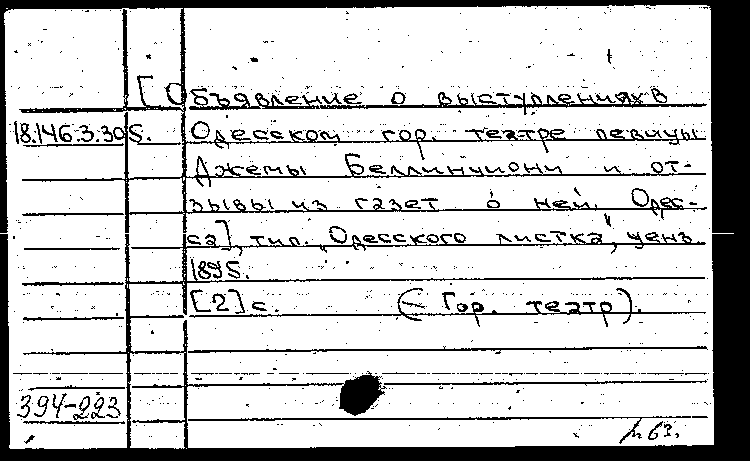 [Объявление о выступлениях в
18.146.3.305. Одесском гор. театре певицы
Джемы Беллинчиони и от-
зывы из газет о ней. Одес-
са], тип. „Одесского листка", ценз.
1895.
[2] с. (– Гор. театр).
394-223
63.